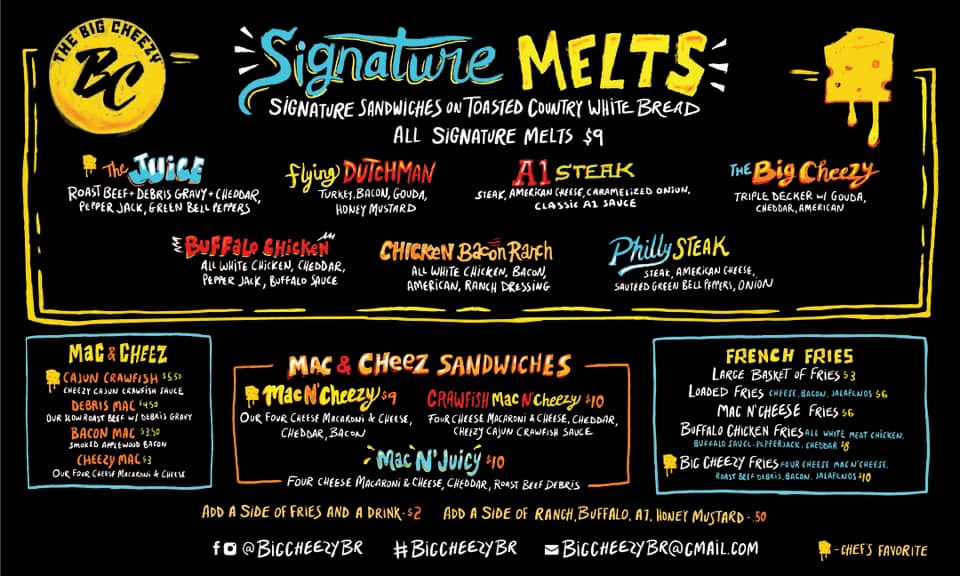 THE BIG CHEEZY
BC
Signature MELTS
SIGNATURE SANDWICHES ON TOASTED COUNTRY WHITE BREAD
ALL SIGNATURE MELTS $9
The JUICE
ROAST BEEF + DEBRIS GRAVY + CHEDDAR,
PEPPER JACK, GREEN BELL PEPPERS
Flying DUTCHMAN
TURKEY, BACON, GOUDA,
HONEY MUSTARD
A1 STEAK
STEAK, AMERICAN CHEESE, CARAMELIZED ONION,
CLASSIC A1 SAUCE
THE Big Cheezy
TRIPLE DECKER W/ GOUDA,
CHEDDAR, AMERICAN
BUFFALO CHICKEN
ALL WHITE CHICKEN, CHEDDAR,
PEPPER JACK, BUFFALO SAUCE
CHICKEN Bacon Ranch
ALL WHITE CHICKEN, BACON,
AMERICAN, RANCH DRESSING
Philly STEAK
STEAK, AMERICAN CHEESE,
SAUTEED GREEN BELL PEPPERS, ONION
MAC & CHEEZ
CAJUN CRAWFISH $5.50
CHEEZY CAJUN CRAWFISH SAUCE
DEBRIS MAC $4.50
OUR SLOW ROAST BEEF W/ DEBRIS GRAVY
BACON MAC $3.50
SMOKED APPLEWOOD BACON
CHEEZY MAC $3
OUR FOUR CHEESE MACARONI & CHEESE
MAC & CHEEZ SANDWICHES
Mac N' Cheezy $9
OUR FOUR CHEESE MACARONI & CHEESE,
CHEDDAR, BACON
CRAWFISH Mac N' Cheezy $10
FOUR CHEESE MACARONI & CHEESE, CHEDDAR,
CHEEZY CAJUN CRAWFISH SAUCE
Mac N' Juicy $10
FOUR CHEESE MACARONI & CHEESE, CHEDDAR, ROAST BEEF DEBRIS
FRENCH FRIES
LARGE BASKET OF FRIES $3
LOADED FRIES CHEESE, BACON, JALAPENOS $6
MAC N' CHEESE FRIES $6
BUFFALO CHICKEN FRIES ALL WHITE MEAT CHICKEN,
BUFFALO SAUCE, PEPPERJACK, CHEDDAR $8
BIG CHEEZY FRIES FOUR CHEESE MAC N' CHEESE,
ROAST BEEF DEBRIS, BACON, JALAPENOS $10
ADD A SIDE OF FRIES AND A DRINK - $2 ADD A SIDE OF RANCH, BUFFALO, A1, HONEY MUSTARD - .50
@BIGCHEEZYBR #BIGCHEEZYBR BIGCHEEZYBR@GMAIL.COM
- CHEF'S FAVORITE